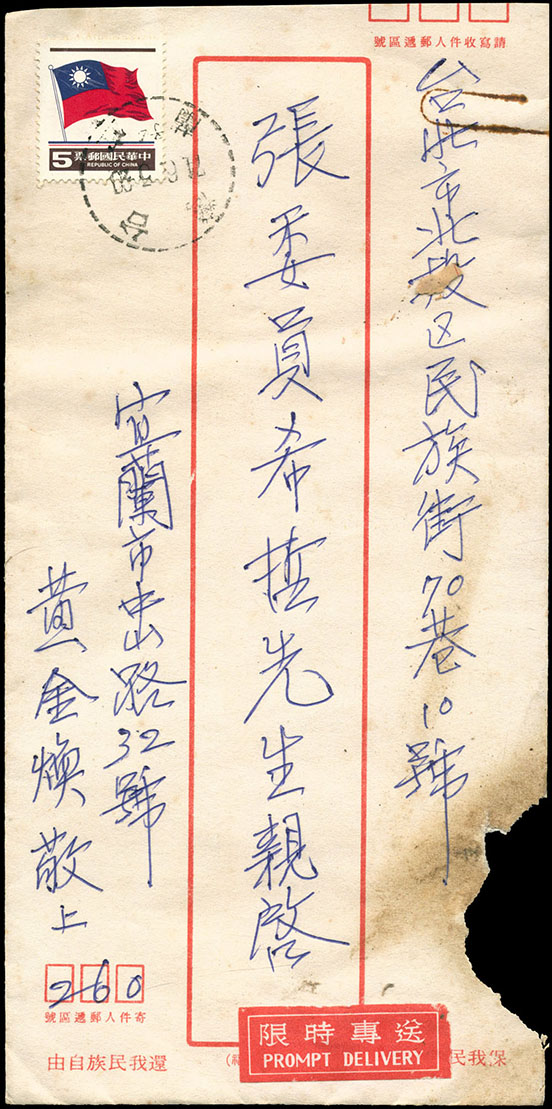 請寫收件人郵遞區號
台北市北投区民族街70巷10號
張委員希哲先生親啓
宜蘭市中山路32號
黃金煥敬上
260
寄件人郵遞區號
中華民國郵票
REPUBLIC OF CHINA
5
限時專送
PROMPT DELIVERY
保我民
還我民族自由